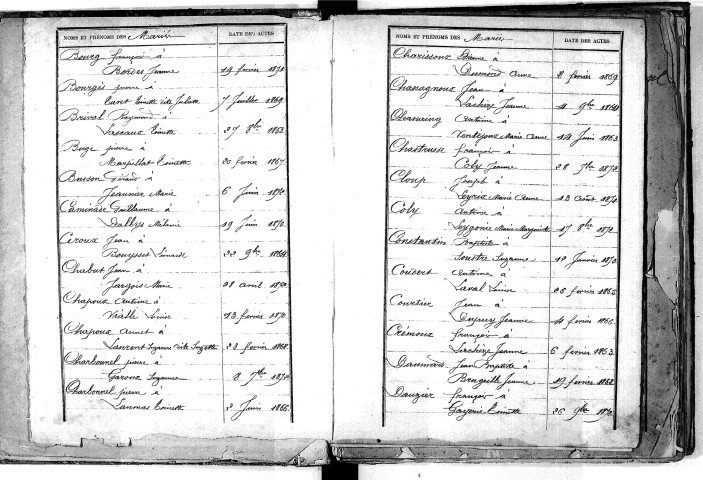 NOMS ET PRÉNOMS DES Mariés DATE DES ACTES
Bourg françois à
Bordes Jeanne 19 février 1871
Bourgès pierre à
Toinette dite Juliette 7 Juillet 1869
Brival Raymond à
Lascaux Toinette 27 8bre 1863
Buge pierre à
Marpillat Toinette 20 février 1867
Buisson Géraud à
Jeaunier Marie 6 Juin 1870
Caminade Guillaume à
Dalbys Mélanie 19 Juin 1870
Ceroux Jean à
Bouyssset Léonarde 22 9bre 1864
Chabut Jean à
Jarjois Marie 28 avril 1870
Chapoux Antoine à
Vialle Louise 13 février 1870
Chapoux Annet à
Laurent Suzanne dite Suzette 23 février 1868
Charbonnel pierre à
Garoux Suzanne 8 7bre 1870
Charbonnel pierre à
Lanmas Toinette 2 Juin 1866
NOMS ET PRÉNOMS DES Mariés DATE DES ACTES
Charissoux Etienne à
Dumond Anne 2 février 1869
Chanagnoux Jean à
Lachèze Jeanne 4 9bre 1864
Antoine à
Ventéjoux Marie Anne 14 Juin 1863
Chastrusse françois à
Coby Jeanne 28 7bre 1872
Cloup Joseph à
Leyrix Marie Anne 13 août 1871
Coby Antoine à
Leygonie Marie Marguerite 17 8bre 1871
Constantin Baptiste à
Soustre Suzanne 10 Janvier 1872
Coudert Antoine à
Laval Louise 26 février 1865
Courtier Jean à
Dupuy Jeanne 4 février 1866
Crémoux françois à
Lachèze Jeanne 6 février 1863
Daumard Jean Baptiste à
Bruzeille Jeanne 19 février 1868
Dauzier françois à
Gazerie Toinette 26 9bre 1871